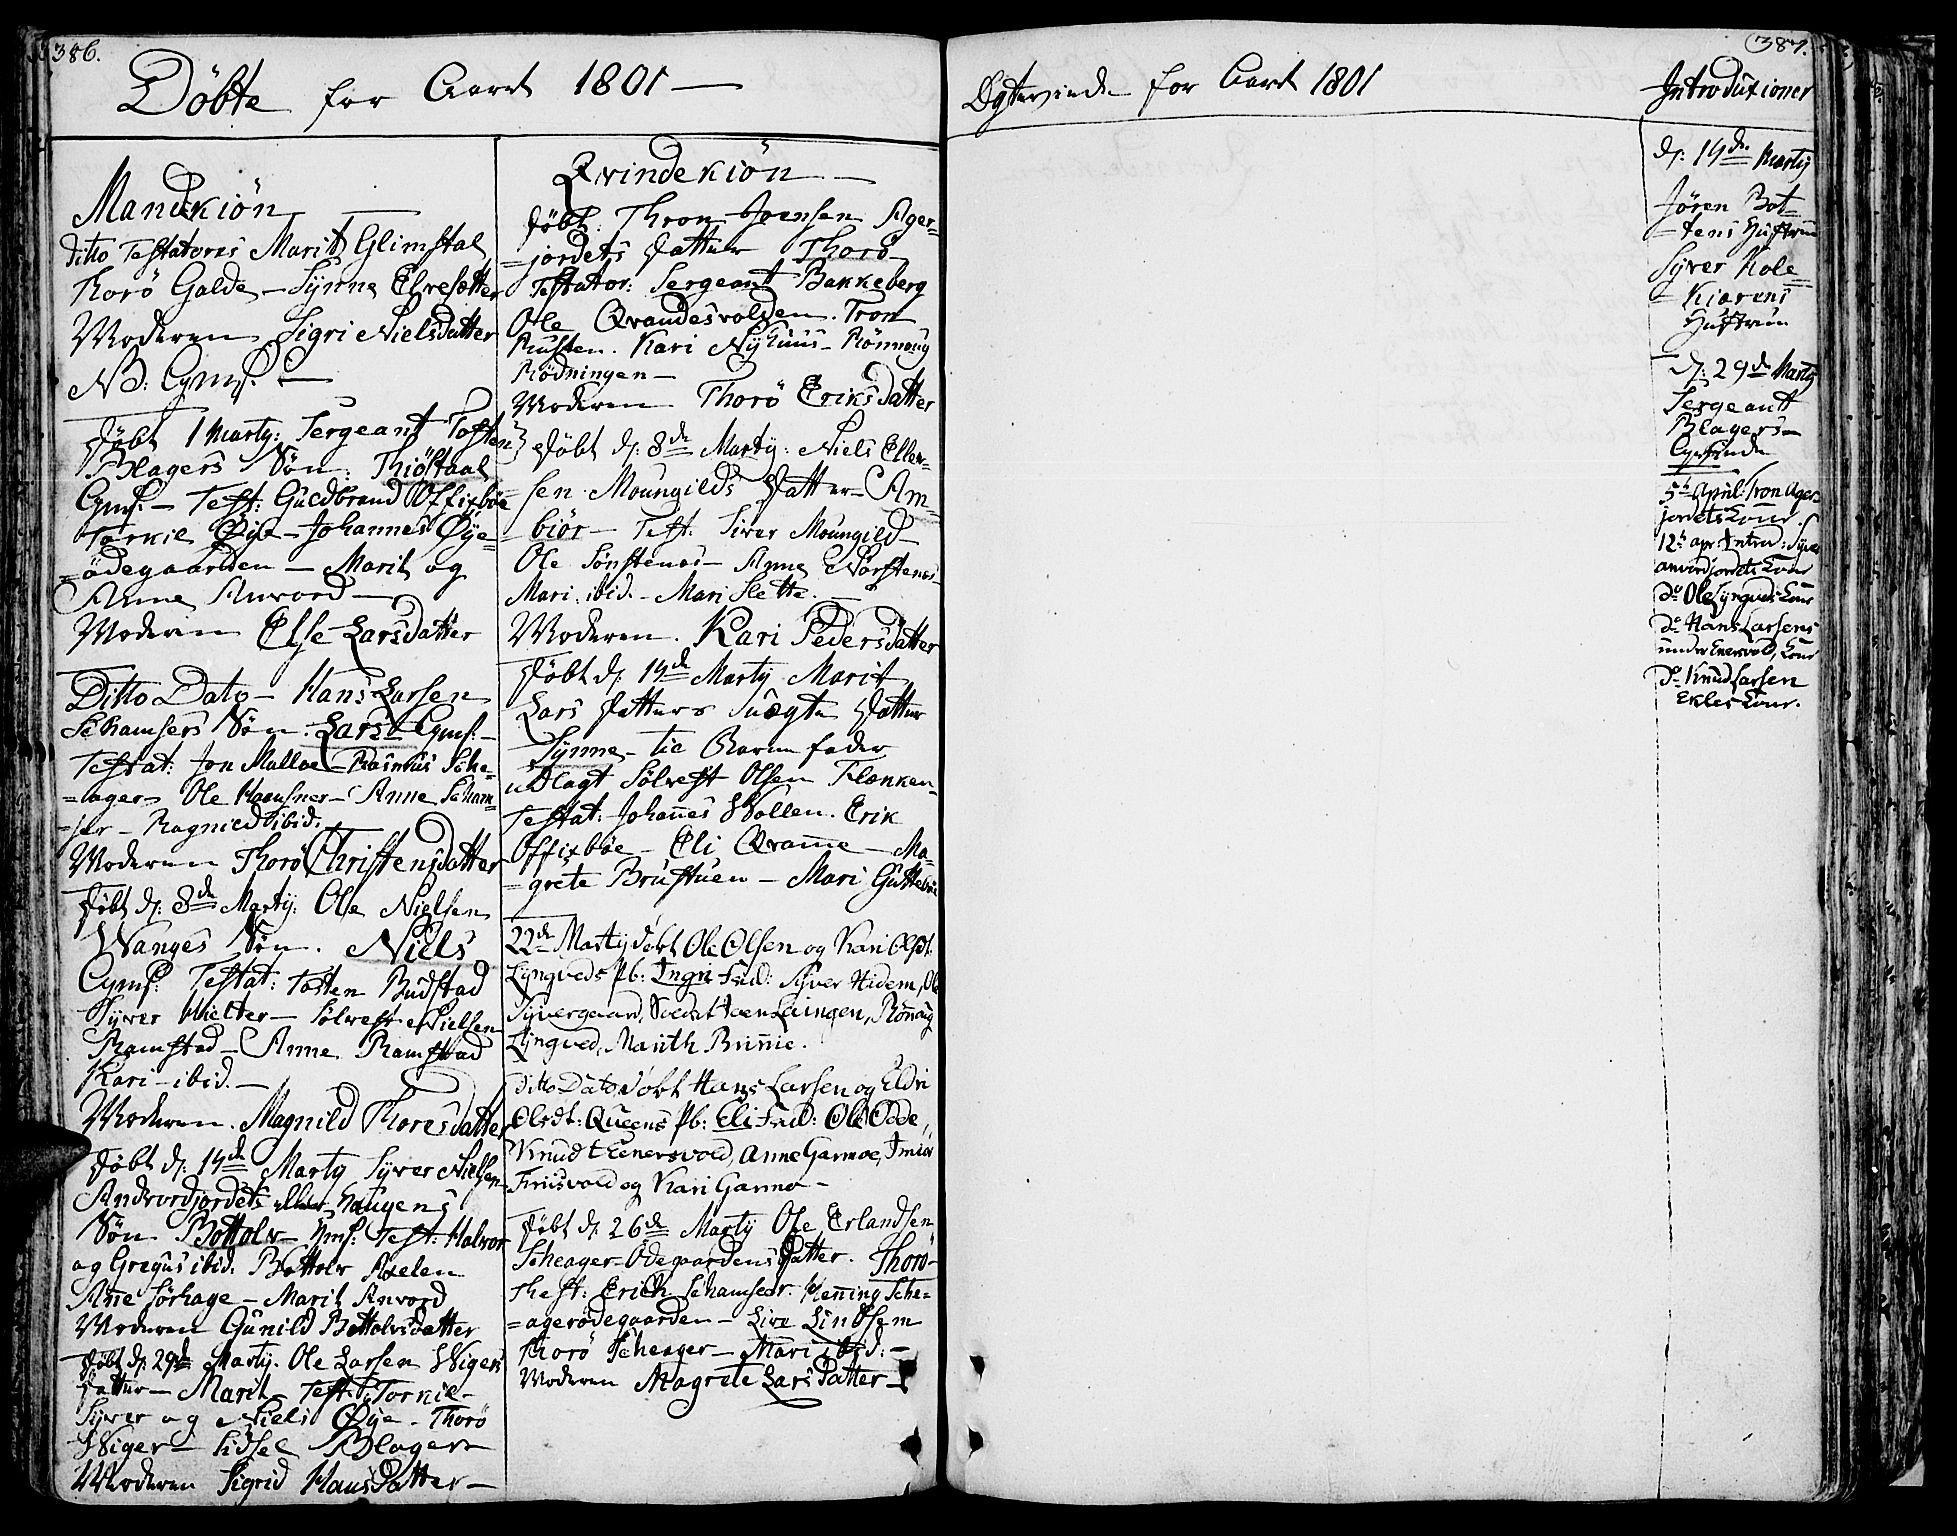 386.
Döbte for Aaret 1801 —
Mandkiön
ditto Testatores Marit Glimstal
Thorö Galde — Synne Elvesætter
Moderen Sigri Nielsdatter
NB: Gyms. —
Döbt 1 Marty: Sergeant Tosten
Blagers Sön: Thiöstaal
Gyms. — Test: Guldbrand Offixböe
Torkil Öye — Johannes Öye=
=ödegaarden — Marit og
Anne Anvord —
Moderen Else Larsdatter
Ditto Dato — Hans Larsen
Schamsers Sön: Lars — Gyms: —
Testat: Jon Malloe — Rasmus Sche=
=ager Ole Hamsner — Anne Scham=
=ser — Ragnild ibid:
Moderen Thorö Christensdatter
Döbt d: 8de Marty: Ole Nielsen
Wanges Sön. Niels
Gyms: Testat: Tosten Budstad
Syver Hielter — Sölvest Nielsen
Ramstad — Anne Ramstad
Kari — ibid. —
Moderen. Magnild Thoresdatter
Döbt d: 14de Marty Syver Nielsen
Andvordjordets eller Haugens
Sön Bottolv — Gms: Test: Halvor
og Gregus ibid: Bottolv Axelen
Añe Sörhage — Marit Anvord
Moderen Gunild Bottolvsdatter
Döbt d: 29de Marty. Ole Larsen Wigers
Datter — Marit — Test: Torkil —
Syver og Niels Öye — Thorö
Wiger — Sidsel Blager —
Moderen Sigrid HansDatter —
Qvindekiön —
Döbt: Thron Joensen Ager=
=jordets Datter Thorö
Testator: Sergeant Bakkeberg
Ole Qvandesvolden. Tron
Rusten. Kari Nyhuus — Rönnaug
Rödningen —
Moderen Thorö Eriksdatter
Döbt d: 8de Marty: Niels Eller=
=sen Moungilds Datter — Am=
=biör — Test. Siver Moungild
Ole Sönstenes — Anne Norstenes
Mari ibid. — Mari Slette. —
Moderen. Kari Pedersdatter
Döbt d: 14de Marty Marit
Lars Datters Uægte Datter
Synne — til Barne fader
udlagt Sölvest Olsen Flænken —
Testat: Johañes Wollen. Erik
Offixböe — Eli Qvame — Ma=
=grete Brustuen — Mari Gutteböe
22de Marty döbt Ole Olsen og Kari Olsdt:
Lyngveds Pb: Ingri Fad: Syver Hidem, Ole
Syvergaard, Soldat Hoen Leiingen, Rönnaug
Lyngved, Marith Briñie.
Ditto Dato döbt Hans Larsen og Eldri
Olsdt: Queens Pb: Eli Fad: Ole Odde,
Knudt Eenersvold, Anne Garmoe,
Friisvold og Kari Garmo —
Döbt d: 26de Marty Ole Erlandsen
Scheager-Ödegaardens Datter. Thorö —
Thest: Erich Schamser. Heñing Sche=
=agerödegaarden — Live Lindsem
Thorö Scheager — Mari ibid: —
Moderen Magrete LarsDatter —
387.
Ægteviede for Aaret 1801
Introductioner
d: 14de Marty
Jören Bot=
=tens Hustrue
Syver Kole=
=Kiærens
Hustrue
d: 29de Marty
Sergeant
Blagers
Qvinde
5te April: Tron Ager=
jordets Kone.
12te apr: Introd: Syver
anvordjordets Kone
do Ole Lyngveds Kone
do Hans Larsens
under Enersvold, Kone
do Knud Larsen
Ekles Kone.